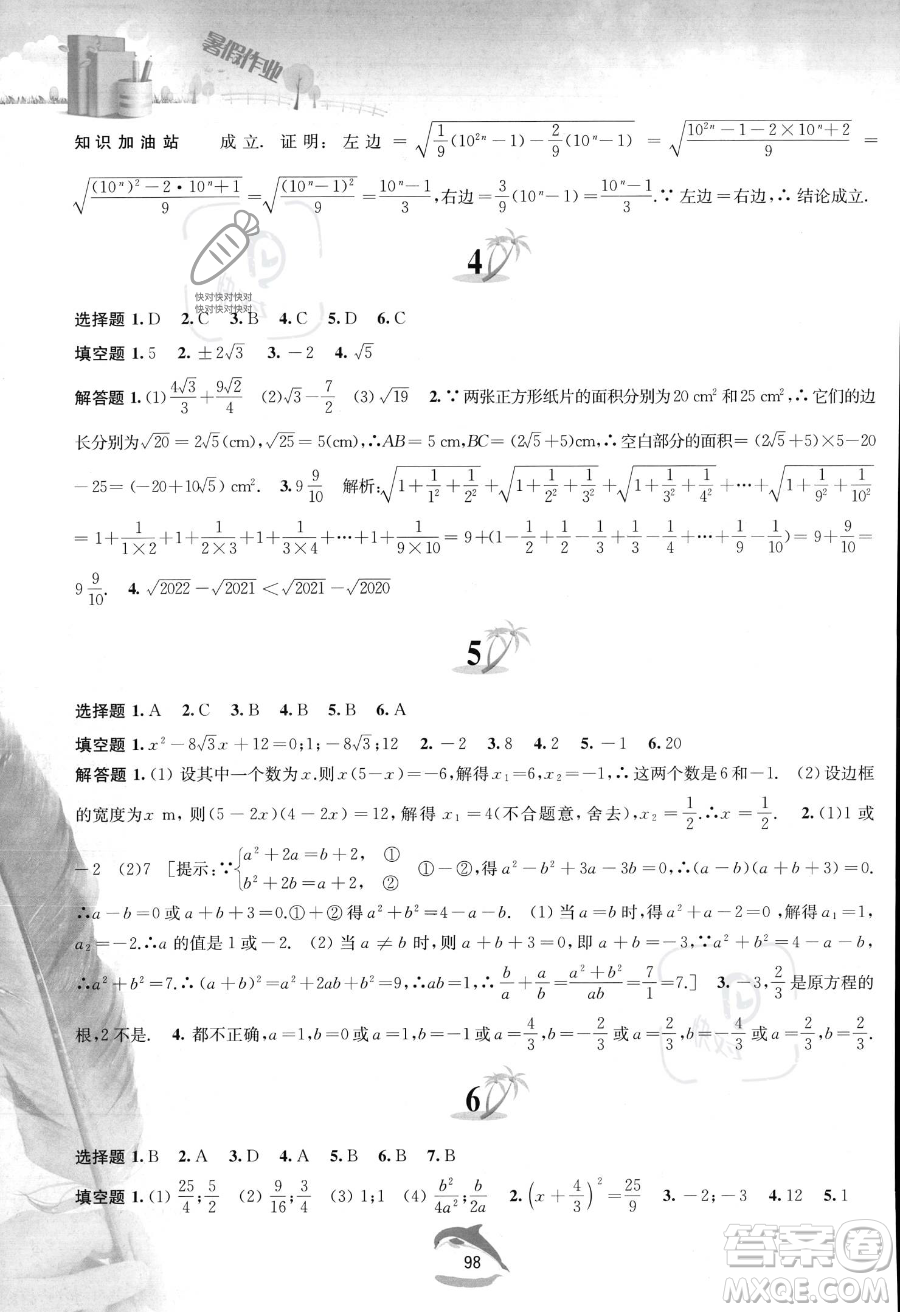 暑假作业
知识加油站 成立. 证明: 左边=√(1/9(10^{2n}-1)-2/9(10^n-1))=√((10^{2n}-1-2×10^n+2)/9)=
√(((10^n)^2-2·10^n+1)/9)=√((10^n-1)^2/9)=(10^n-1)/3,右边=3/9(10^n-1)=(10^n-1)/3.∵ 左边=右边,∴ 结论成立.
4
快对快对快对
快对快对快对
选择题 1. D 2. C 3. B 4. C 5. D 6. C
填空题 1. 5 2. ±2√3 3. -2 4. √5
解答题 1. (1) 4√3/3+9√2/4 (2)√3-7/2 (3)√19 2. ∵ 两张正方形纸片的面积分别为20 cm²和25 cm²,∴ 它们的边
长分别为√20=2√5(cm),√25=5(cm),∴AB=5 cm,BC=(2√5+5)cm,∴ 空白部分的面积=(2√5+5)×5-20
-25=(-20+10√5)cm². 3. 9 9/10 解析:√(1+1/1²+1/2²)+√(1+1/2²+1/3²)+√(1+1/3²+1/4²)+…+√(1+1/9²+1/10²)
=1+1/(1×2)+1+1/(2×3)+1+1/(3×4)+…+1+1/(9×10)=9+(1-1/2+1/2-1/3+1/3-1/4+…+1/9-1/10)=9+9/10=
9 9/10. 4. √2022-√2021<√2021-√2020
5
选择题 1. A 2. C 3. B 4. B 5. B 6. A
填空题 1. x²-8√3x+12=0;1;-8√3;12 2. -2 3. 8 4. 2 5. -1 6. 20
解答题 1. (1) 设其中一个数为x.则x(5-x)=-6,解得x₁=6,x₂=-1,∴ 这两个数是6和-1. (2)设边框
的宽度为x m,则(5-2x)(8-2x)=12,解得x₁=4(不合题意,舍去),x₂=1/2.∴x=1/2. 2. (1)1或
-2 (2)7 [提示:∵{a²+2a=b+2, ① b²+2b=a+2, ② ①-②,得a²-b²+3a-3b=0,∴(a-b)(a+b+3)=0.
∴a-b=0或a+b+3=0.①+②得a²+b²=4-a-b. (1) 当a=b时,得a²+a-2=0,解得a₁=1,
a₂=-2.∴a的值是1或-2. (2) 当a≠b时,a+b+3=0,即a+b=-3,∵a²+b²=4-a-b,
∴a²+b²=7.∴(a+b)²=a²+2ab+b²=9.∴ab=1,∴b/a+a/b=(a²+b²)/ab=7/1=7.] 3. -3,2/3是原方程的
根,2不是. 4. 都不正确,a=1,b=0或a=1,b=-1或a=4/3,b=-2/3或a=2/3,b=-4/3或a=2/3,b=2/3.
6
选择题 1. B 2. A 3. D 4. A 5. B 6. B 7. B
填空题 1. (1) 25/4;5/2 (2) 9/16;3/4 (3) 1;1 (4) b²/4a²;b/2a 2. (x+4/3)²=25/9 3. -2;-3 4. 12 5. 1
98
答案卷
MXQE.COM